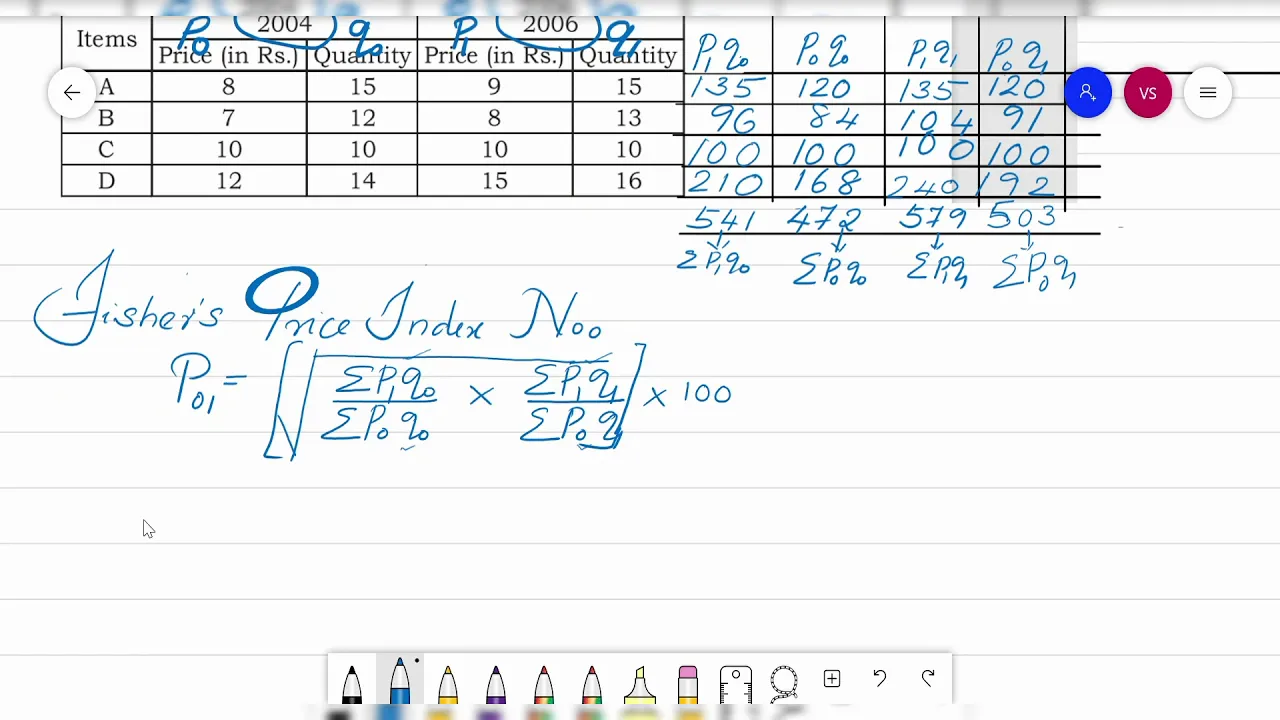 Items P₀ 2004 q₀ P₁ 2006 q₁
Price (in Rs.) Quantity Price (in Rs.) Quantity P₁q₀ P₀q₀ P₁q₁ P₀q₁
A 8 15 9 15 135 120 135 120
B 7 12 8 13 96 84 104 91
C 10 10 10 10 100 100 100 100
D 12 14 15 16 210 168 240 192
541 472 579 503
ΣP₁q₀ ΣP₀q₀ ΣP₁q₁ ΣP₀q₁
VS
Fisher's Price Index No.
P₀₁ = [√ ΣP₁q₀ / ΣP₀q₀ × ΣP₁q₁ / ΣP₀q₁ ] × 100